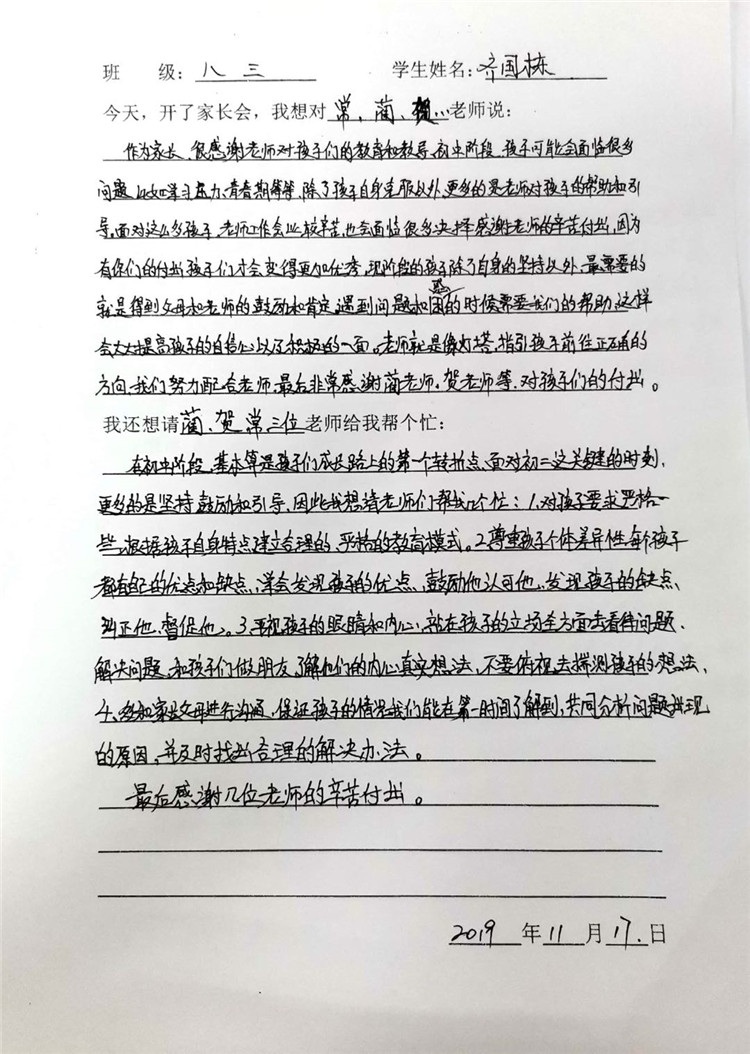 班 级：八 三 学生姓名：齐国栋
今天，开了家长会，我想对 常、蔺、贺 老师说：
作为家长、很感谢老师对孩子们的教育和教导，初中阶段、孩子可能会面临很多
问题，比如学习压力、青春期等等，除了孩子自身克服以外，更多的是老师对孩子的帮助和引
导，面对这么多孩子、老师工作会比较辛苦，也会面临很多决择，感谢老师的辛苦付出，因为
有你们的付出孩子们才会变得更加优秀，现阶段的孩子除了自身的坚持以外，最需要的
就是得到父母和老师的鼓励和肯定，遇到问题和困惑的时候需要我们的帮助，这样
会大大提高孩子的自信心以及积极的一面。老师就是像灯塔，指引孩子前往正确的
方向，我们努力配合老师，最后非常感谢蔺老师、贺老师等，对孩子们的付出。
我还想请 蔺、贺、常三位 老师给我帮个忙：
在初中阶段、基本算是孩子们成长路上的第一个转折点、面对初二这关键的时刻，
更多的是坚持、鼓励和引导，因此我想请老师们帮我几个忙：1.对孩子要求严格一
些，根据孩子自身特点建立合理的、严格的教育模式。2.尊重孩子个体差异性，每个孩子
都有自己的优点和缺点，学会发现孩子的优点、鼓励他认可他，发现孩子的缺点、
纠正他、督促他。3.平视孩子的眼睛和内心，站在孩子的立场全方面去看待问题、
解决问题，和孩子们做朋友，了解他们的内心真实想法，不要俯视去揣测孩子的想法、
4、多和家长父母进行沟通，保证孩子的情况我们能在第一时间了解到，共同分析问题出现
的原因，并及时找出合理的解决办法。
最后感谢几位老师的辛苦付出。
2019 年 11 月 17 日